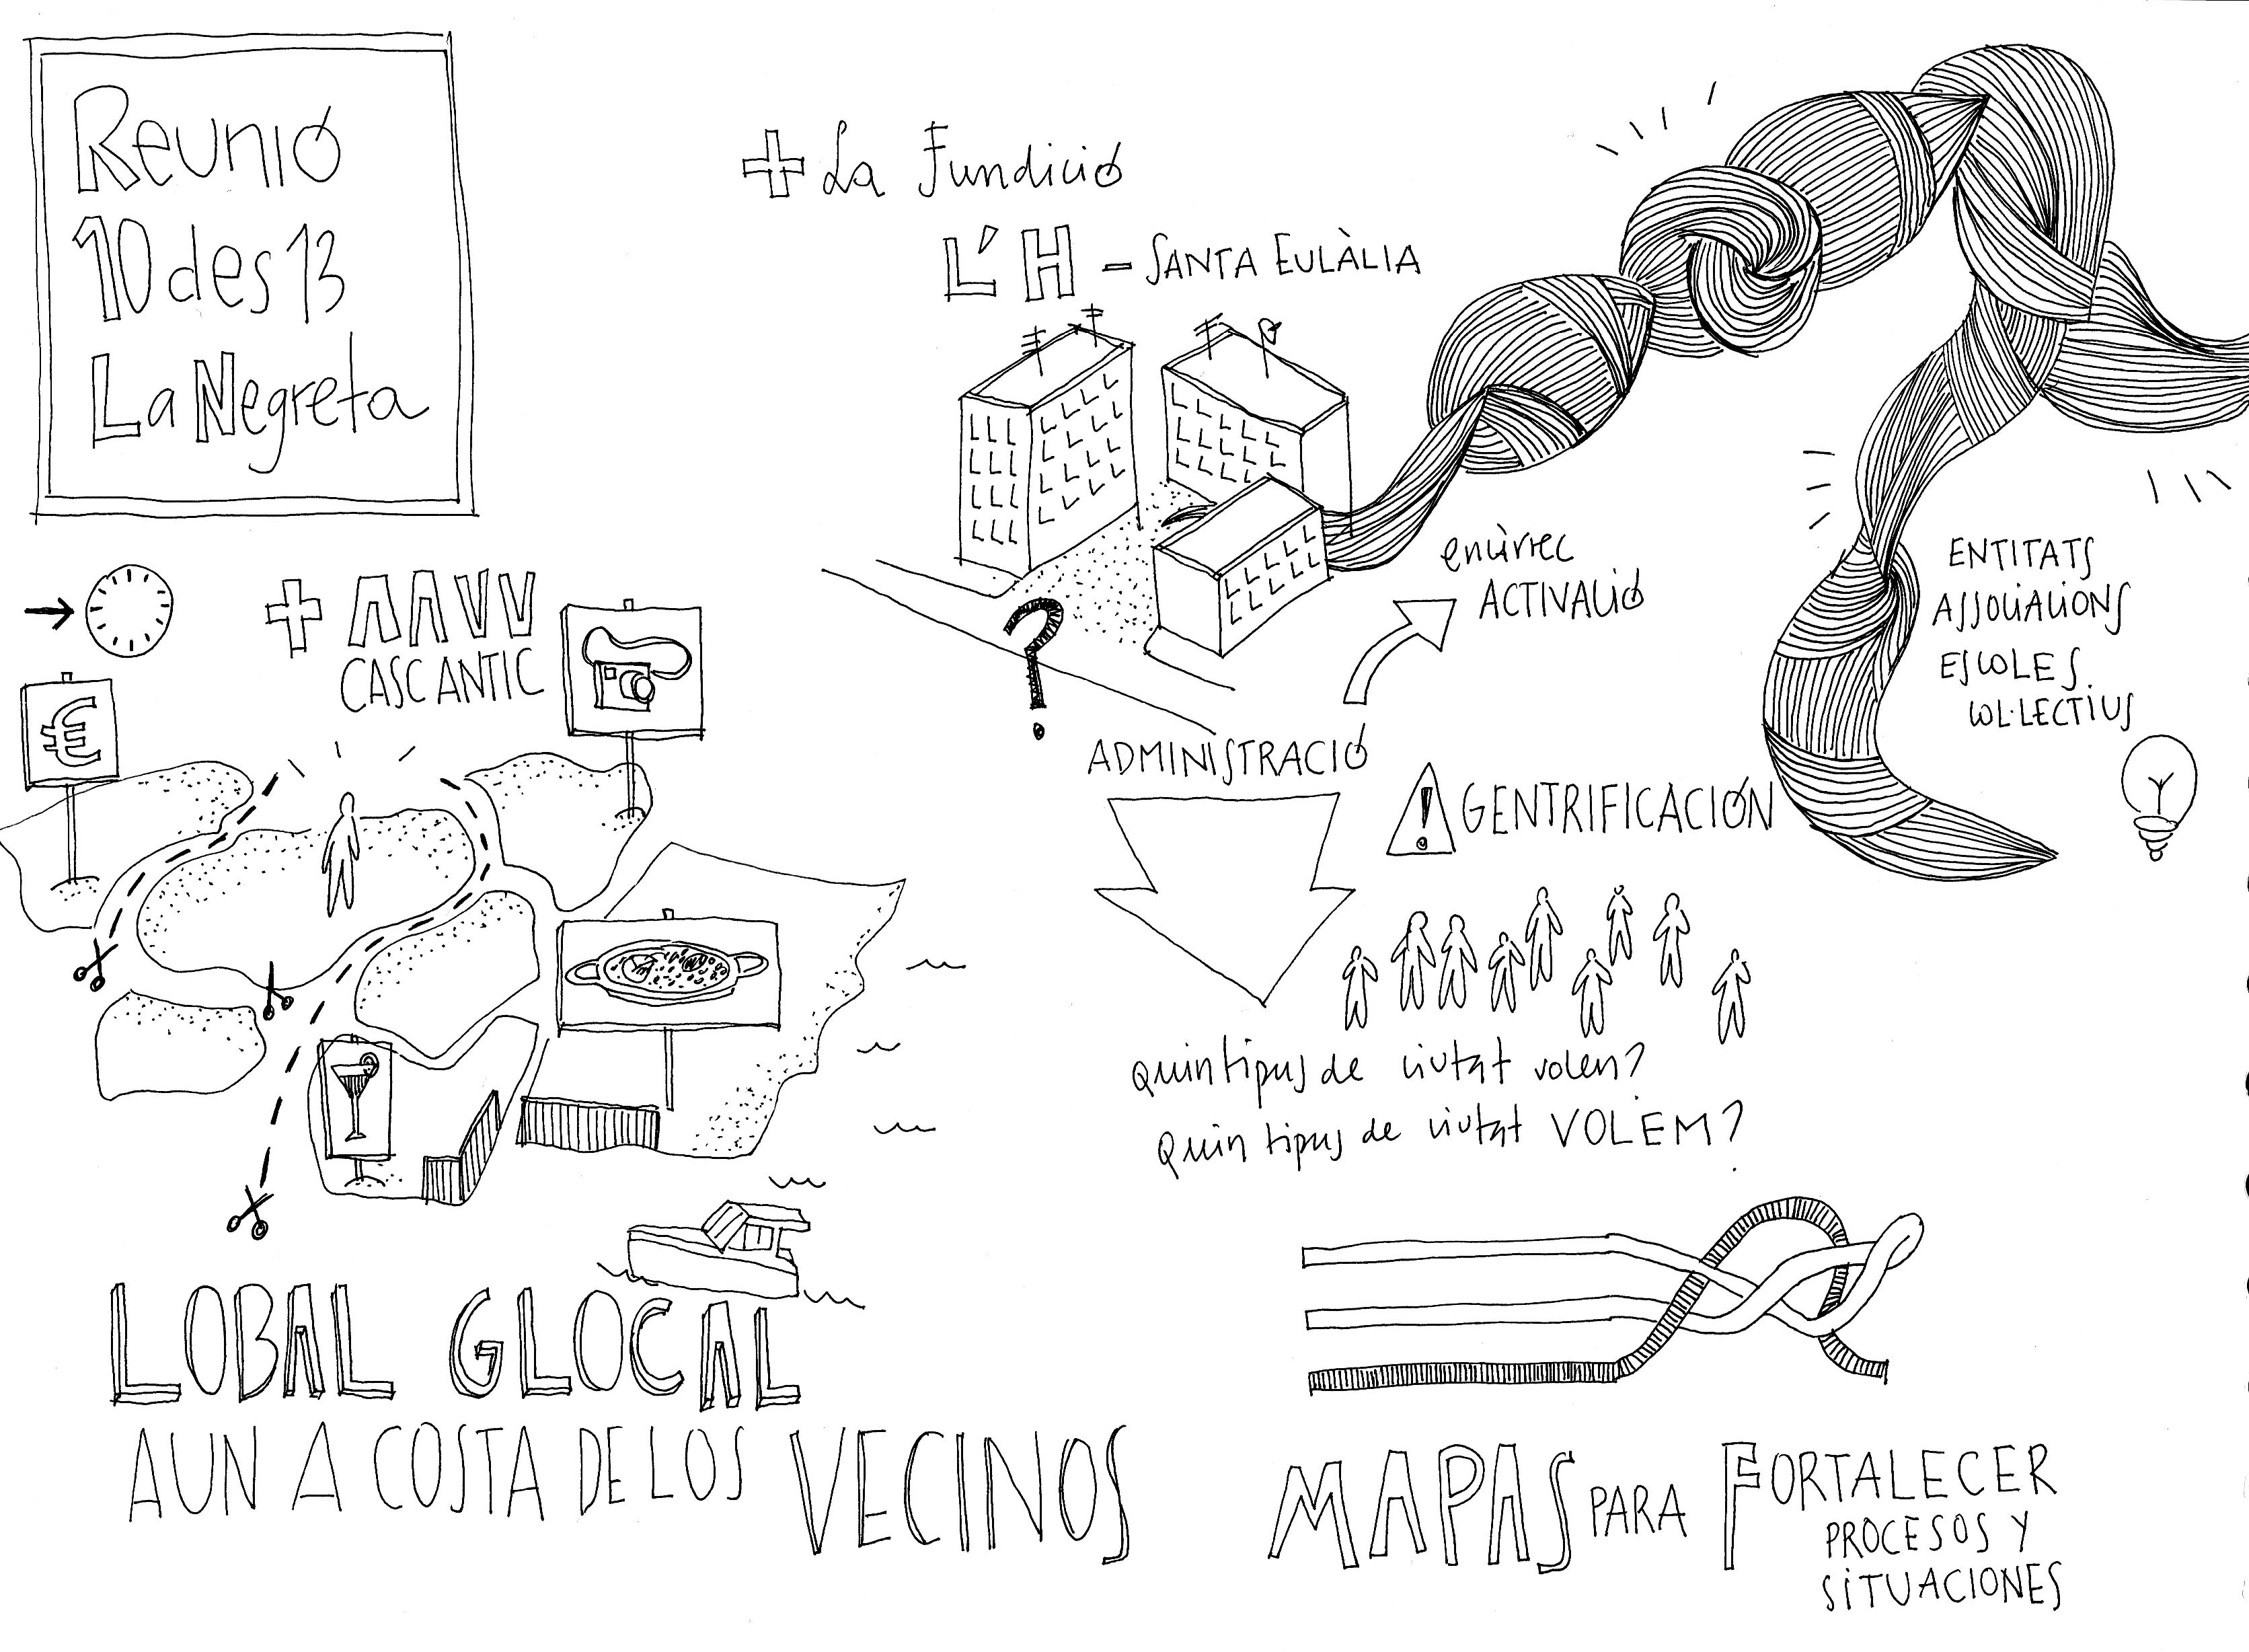 Reunió
10 des 13
La Negreta
+ La Fundició
L'H - SANTA EULÀLIA
+ AAVV
CASC ANTIC
€
encàrrec
ACTIVACIÓ
ENTITATS
ASSOCIACIONS
ESCOLES
COL·LECTIUS
?
ADMINISTRACIÓ
! GENTRIFICACIÓN
Quin tipus de ciutat volen?
Quin tipus de ciutat VOLEM?
LOBAL GLOCAL
AUN A COSTA DE LOS VECINOS
MAPAS PARA FORTALECER
PROCESOS Y
SITUACIONES